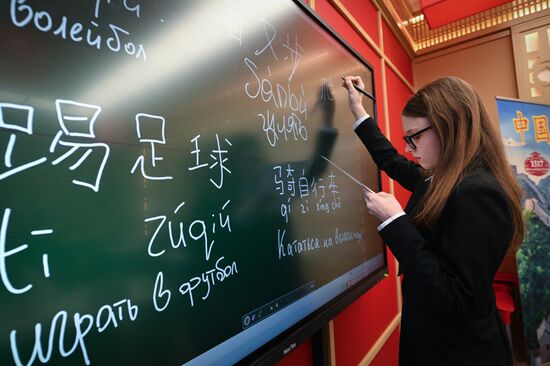 волейбол
Sànbù
踢足球
tī zúqiú
играть в футбол
骑自行车
qí zì xíng chē
Кататься на велосипеде
中国